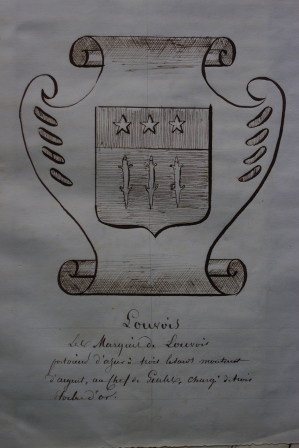 Louvois
Le Marquis de Louvois
portoient d'azur à trois lésars montans
d'argent, au Chef de Gueules, chargé de trois
étoiles d'or.